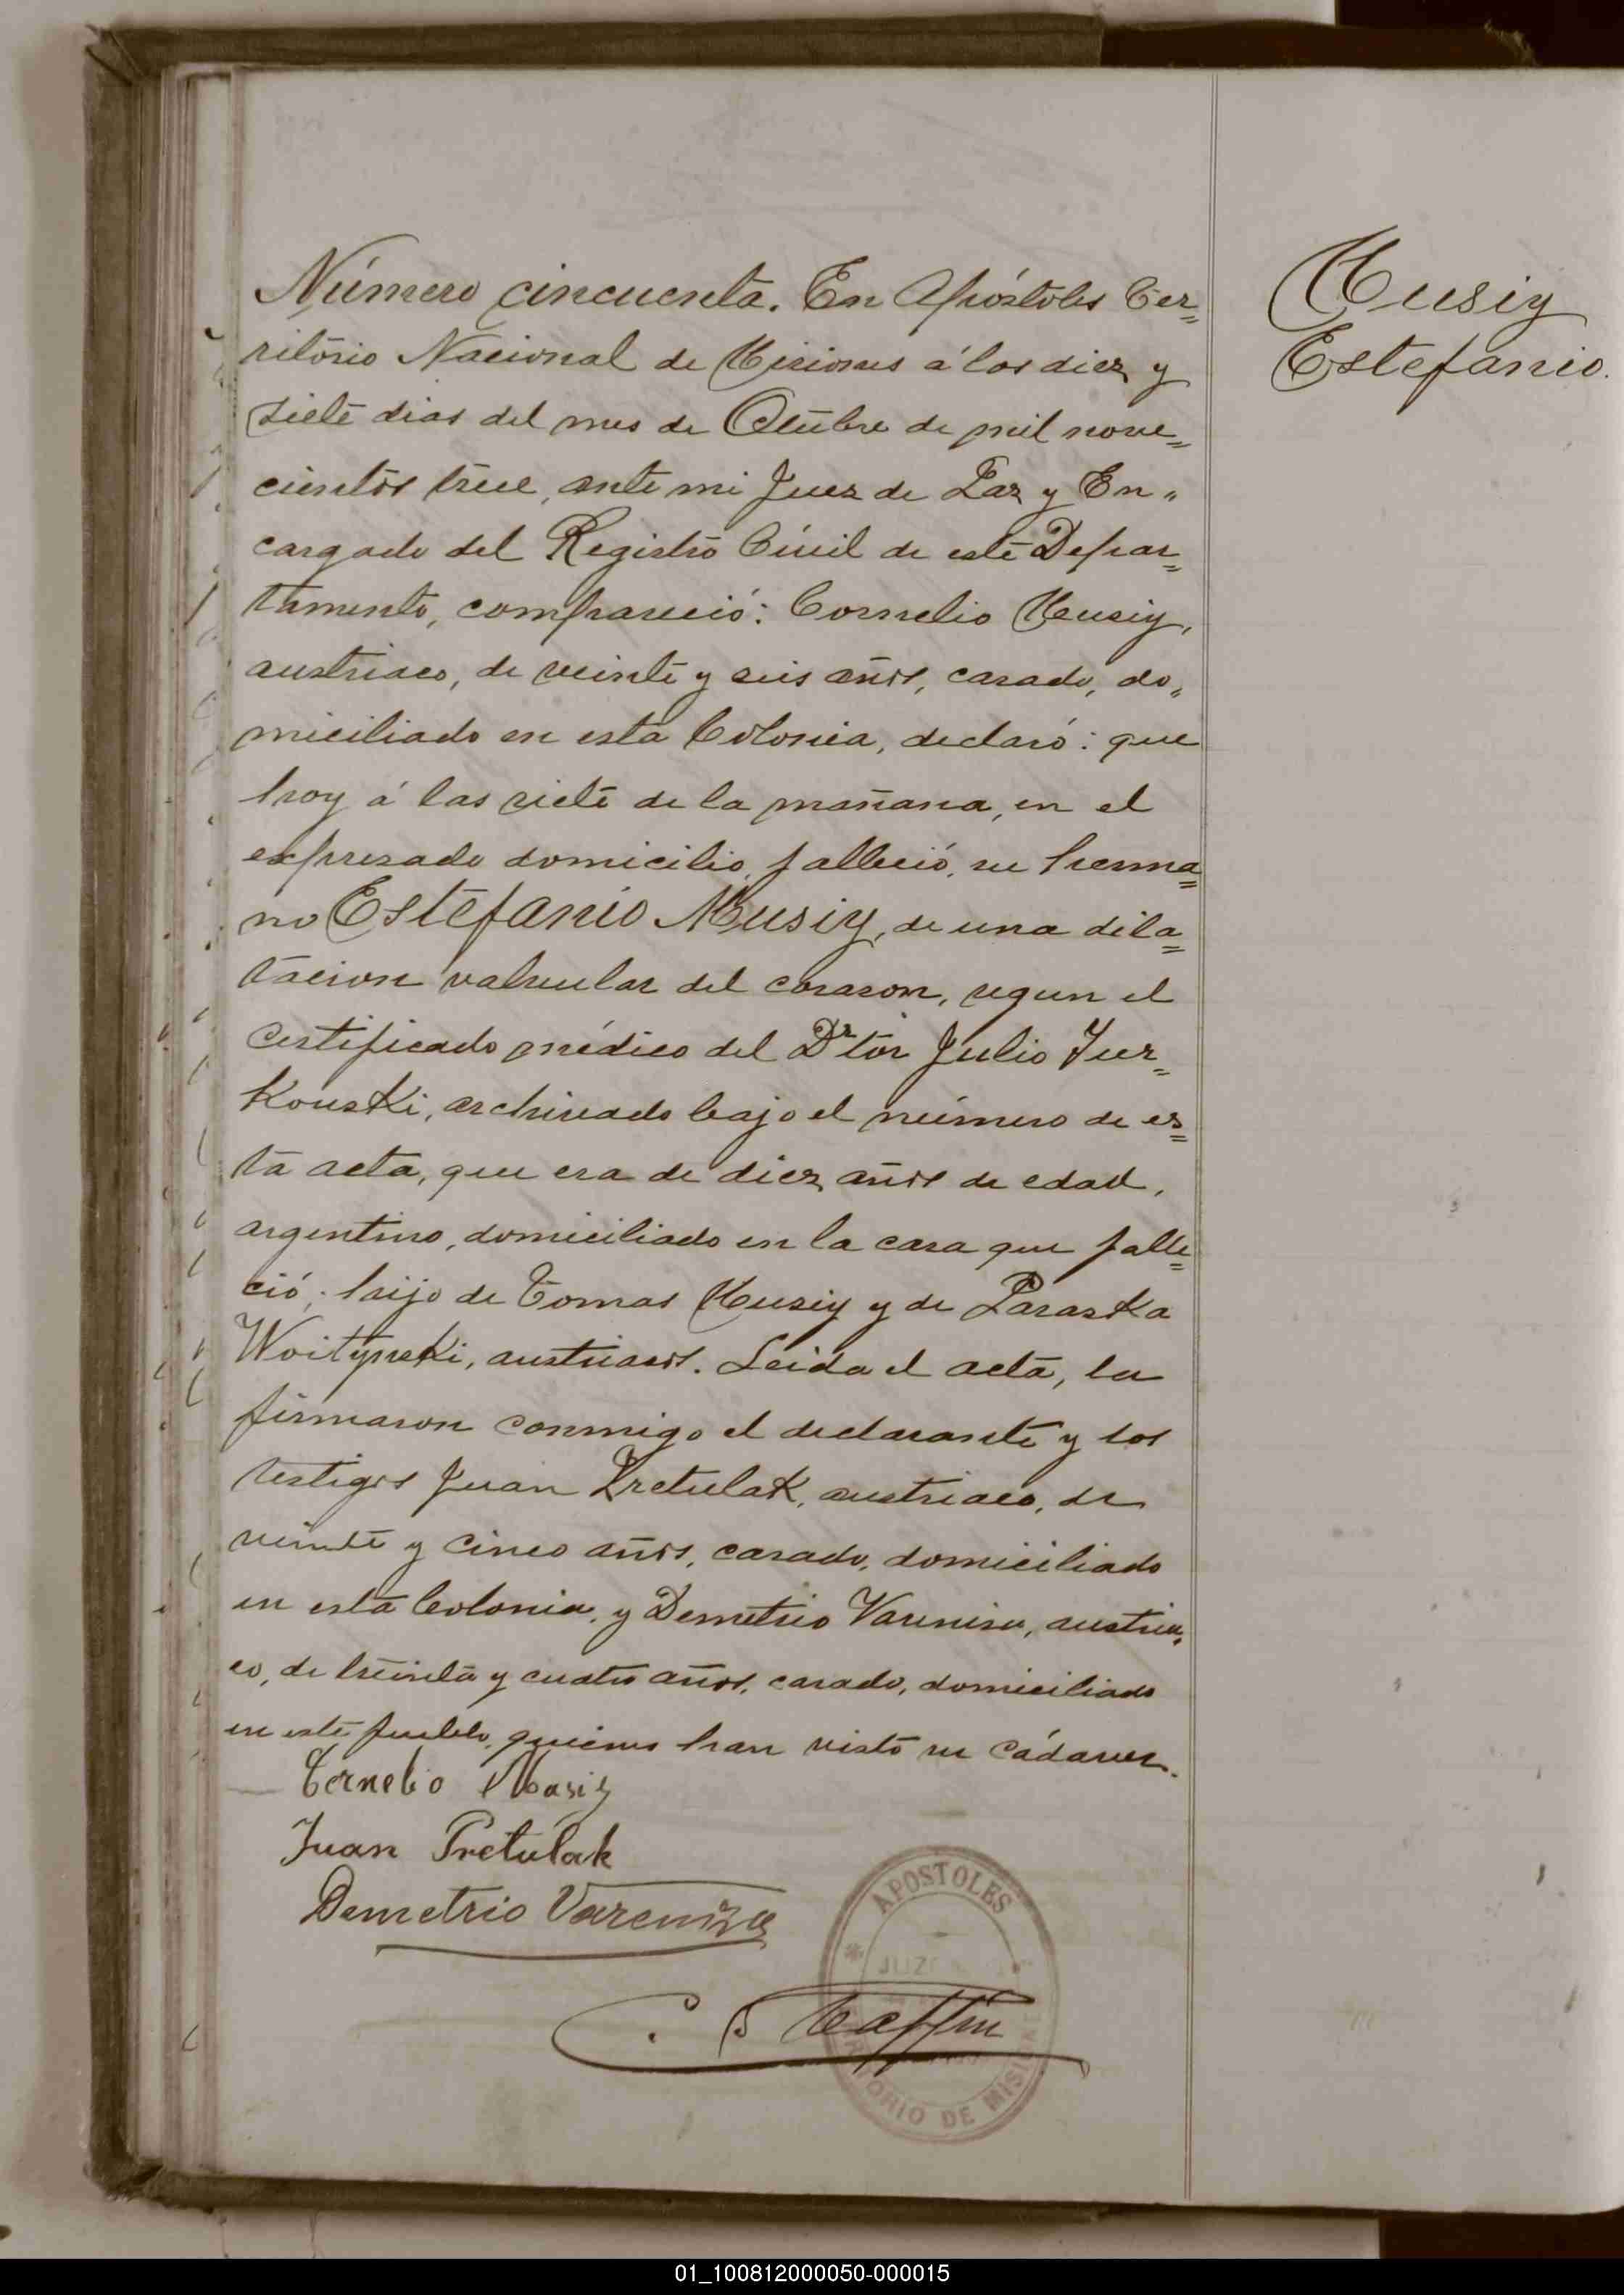 Número cincuenta. En Apóstoles Ter=
ritório Nacional de Misiones á los diez y
siete dias del mes de Octubre de mil nove=
cientos trece, ante mi Juez de Paz y En"
cargado del Registro Civil de este Depar=
tamento, compareció: Cornelio Musiy,
austriaco, de veinte y seis años, casado, do"
miciliado en esta Colonia, declaró: que
hoy á las siete de la mañana, en el
expresado domicilio, falleció, su herma=
no Estefanio Musiy, de una dila=
tacion valvular del corason, segun el
certificado médico del Drtor Julio Jur=
Kouski, archivado bajo el número de es=
ta acta, que era de diez años de edad,
argentino, domiciliado en la casa que falle=
ció; hijo de Tomas Musiy y de Paraska
Woityneki, austriacos. Leida el acta, la
firmaron conmigo el declarante y los
testigos Juan Pretulak, austriaco, de
veinte y cinco años, casado, domiciliado
en esta Colonia, y Demetrio Varenisa, austria"
co, de treinta y cuatro años, casado, domiciliado
en este pueblo, quienes han visto su cádaver.
Cornelio Musiy
Juan Pretulak
Demetrio Vareniza
Musiy
Estefanio.
APOSTOLES
DE MISIONES
01_100812000050-000015